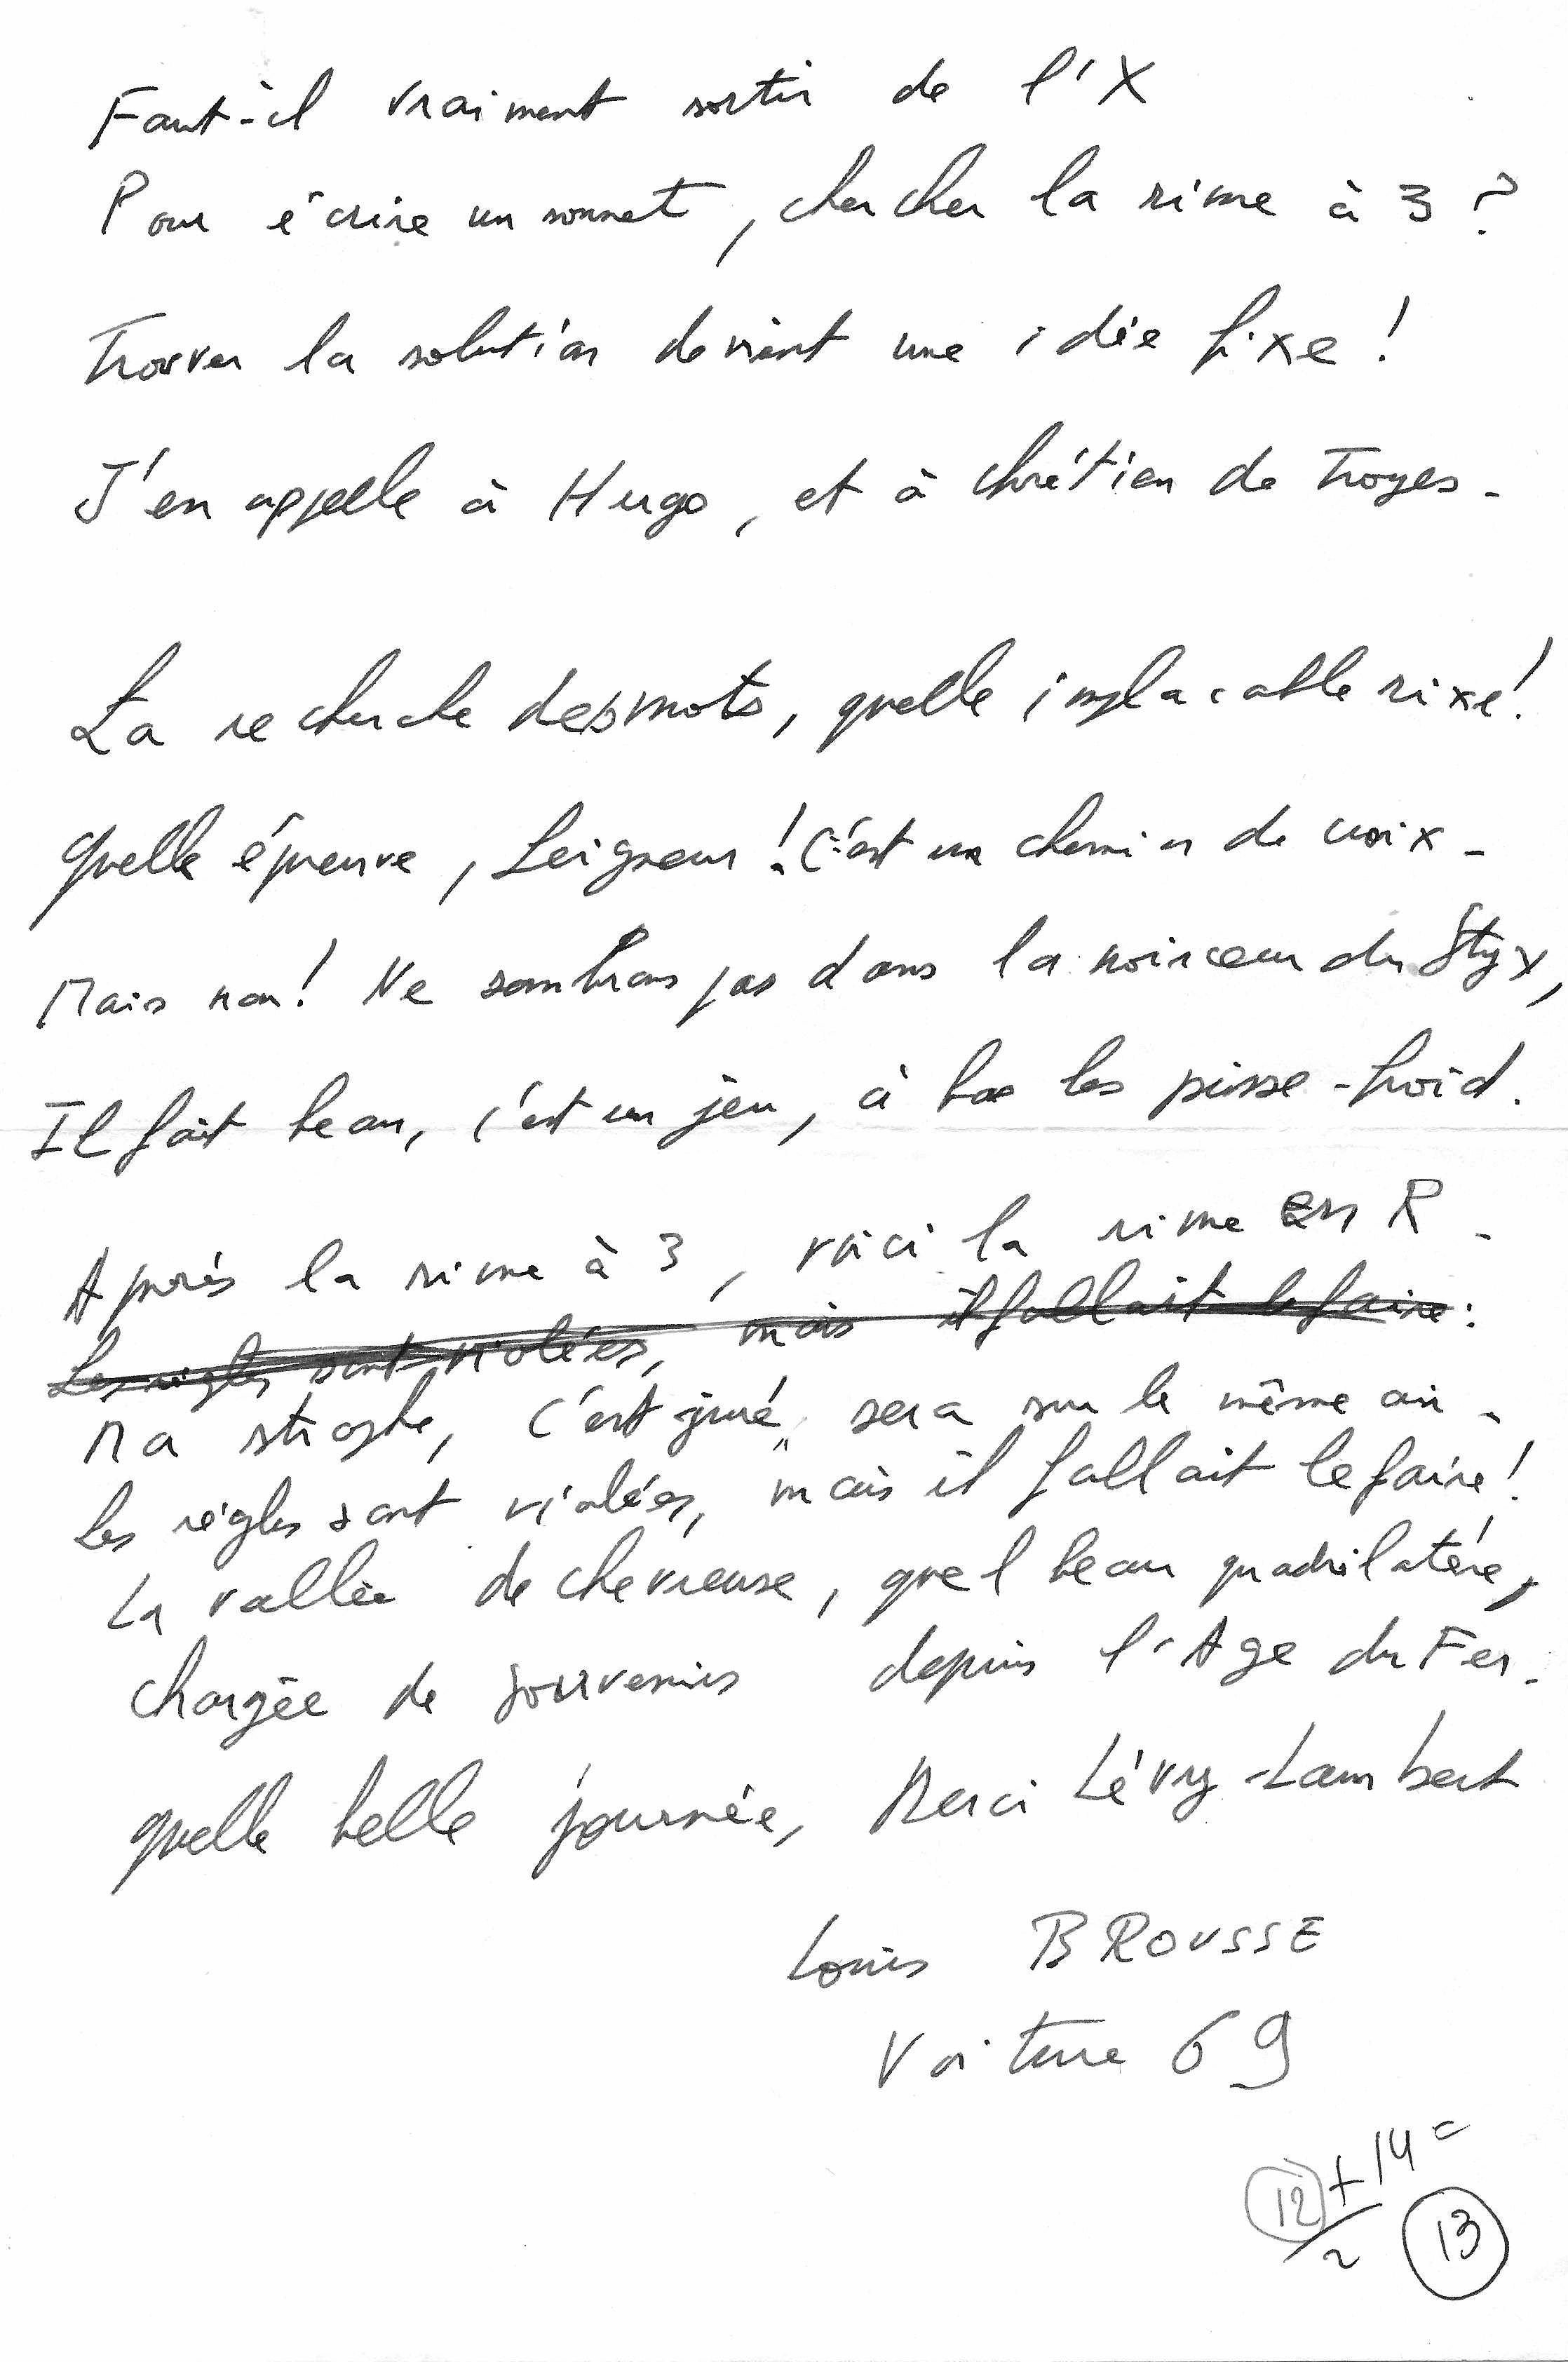 Faut-il vraiment sortir de l'X
Pour écrire un sonnet, chercher la rime à 3 ?
Trouver la solution devient une idée fixe !
J'en appelle à Hugo, et à Chrétien de Troyes.
La recherche des mots, quelle implacable rixe !
Quelle épreuve, Seigneur ! C'est un chemin de croix.
Mais non ! Ne sombrons pas dans la noirceur du Styx,
Il fait beau, c'est un jeu, à bas les pisse-froid.
Après la rime à 3, voici la rime en R.
Les règles sont violées, mais il fallait le faire :
Ma strophe, c'est juré, sera sur le même air.
Les règles sont violées, mais il fallait le faire !
La vallée de Chevreuse, quel beau quadrilatère,
Chargée de souvenirs depuis l'Age du Fer.
Quelle belle journée, Merci Lévy-Lambert
Louis BROUSSE
Voiture 69
12 + 14 =
2 13